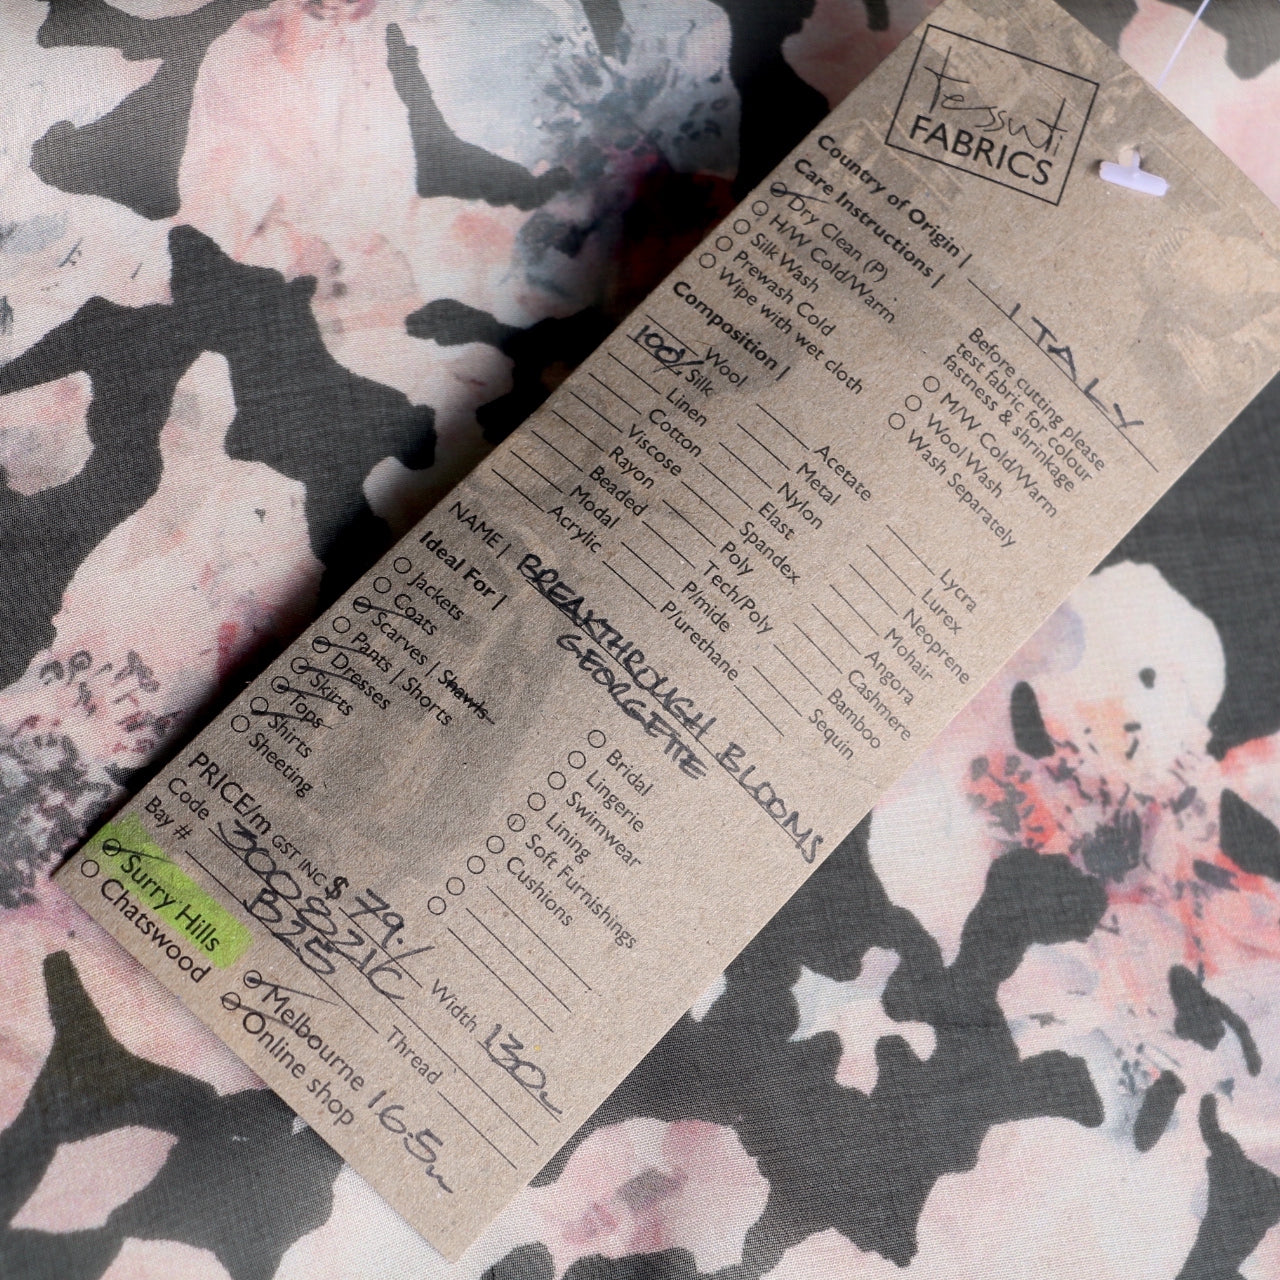 tessuti
FABRICS
Country of Origin | ITALY
Care Instructions |
Dry Clean (P)
H/W Cold/Warm
Silk Wash
Prewash Cold
Wipe with wet cloth
Before cutting please
test fabric for colour
fastness & shrinkage
M/W Cold/Warm
Wool Wash
Wash Separately
Composition |
Wool
100% Silk
Linen
Cotton
Viscose
Rayon
Beaded
Modal
Acrylic
Acetate
Metal
Nylon
Elast
Spandex
Poly
Tech/Poly
P/mide
P/urethane
Lycra
Lurex
Neoprene
Mohair
Angora
Cashmere
Bamboo
Sequin
NAME | BREAKTHROUGH BLOOMS
GEORGETTE
Ideal For |
Jackets
Coats
Scarves | Shawls
Pants | Shorts
Dresses
Skirts
Tops
Shirts
Sheeting
Bridal
Lingerie
Swimwear
Lining
Soft Furnishings
Cushions
PRICE/m GST INC $79./ Width 130
Code 300821C
Bay # B25 Thread
Surry Hills
Chatswood
Melbourne
Online shop
16.5m